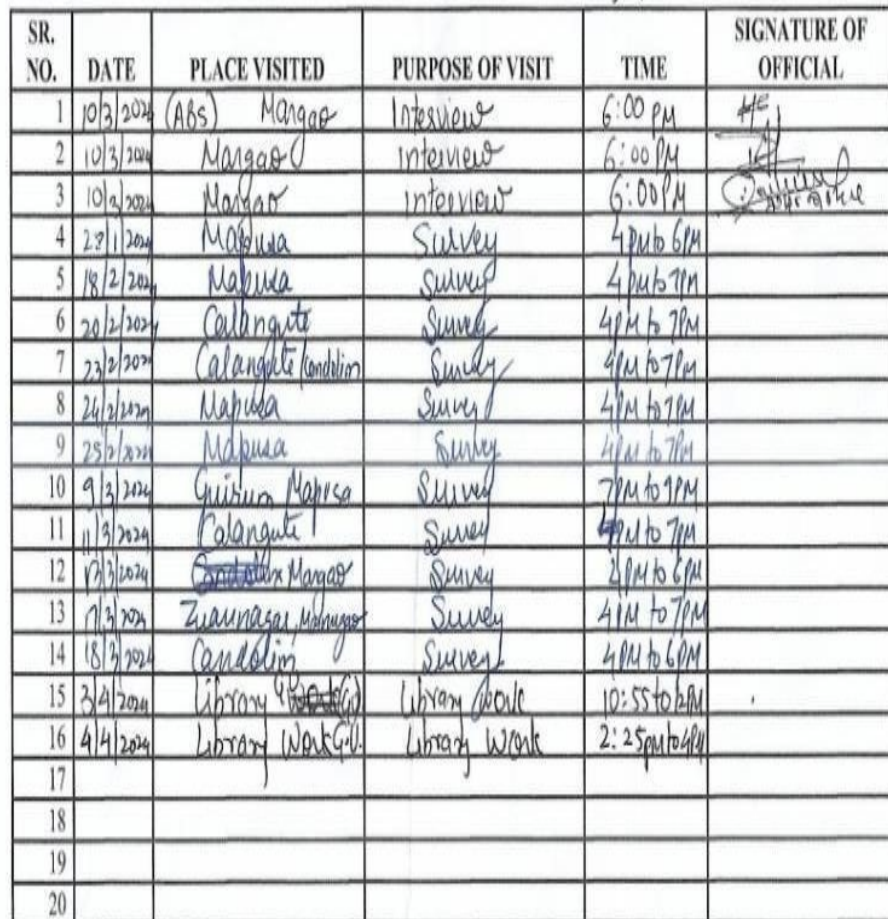 SR. NO. DATE PLACE VISITED PURPOSE OF VISIT TIME SIGNATURE OF OFFICIAL
1 10/3/2024 (ABs) Margao Interview 6:00 PM
2 10/3/2024 Margao interview 6:00 PM
3 10/3/2024 Margao interview 6:00PM
4 28/1/2024 Mapusa Survey 4PM to 6PM
5 18/2/2024 Mapusa Survey 4PM to 7PM
6 20/2/2024 Calangute Survey 4PM to 7PM
7 23/2/2024 Calangute/Candolim Survey 4PM to 7PM
8 24/2/2024 Mapusa Survey 4PM to 7PM
9 25/2/2024 Mapusa Survey 4PM to 7PM
10 9/3/2024 Guirim Mapusa Survey 7PM to 9PM
11 11/3/2024 Calangute Survey 4PM to 7PM
12 13/3/2024 Margao Survey to 6PM
13 17/3/2024 Zuarinagar, Survey 4PM to 7PM
14 18/3/2024 Candolim Survey 4PM to 6PM
15 3/4/2024 Library Library Work 10:55 to 2PM
16 4/4/2024 Library Work G.U. Library Work 2:25pm to 4PM
17
18
19
20